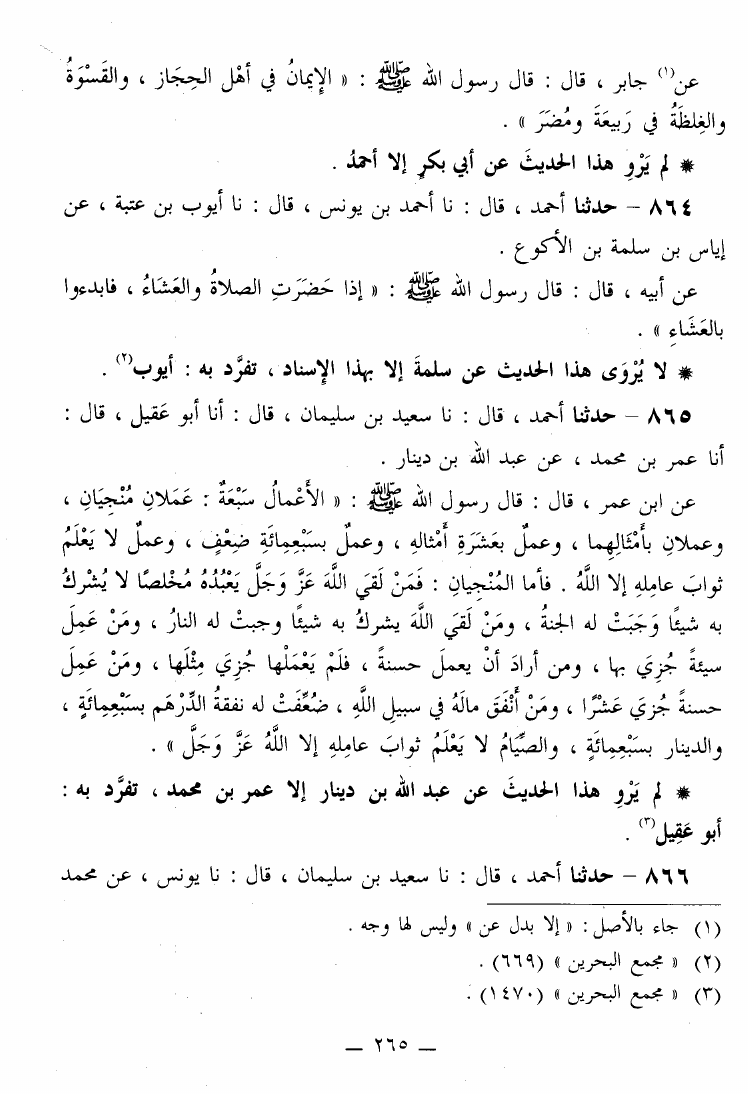 عن(١) جابر ، قال : قال رسول الله ﷺ : « الإيمانُ في أهْل الحِجَاز ، والقَسْوَةُ
والغِلظَةُ في رَبيعَةَ ومُضَرَ » .
* لم يَرْوِ هذا الحديثَ عن أبي بكرٍ إلا أحمدُ .
٨٦٤ – حدثنا أحمد ، قال : نا أحمد بن يونس ، قال : نا أيوب بن عتبة ، عن
إياس بن سلمة بن الأكوع .
عن أبيه ، قال : قال رسول الله ﷺ : « إذا حَضَرَتِ الصلاةُ والعَشَاءُ ، فابدءوا
بالعَشَاءِ » .
* لا يُرْوَى هذا الحديث عن سلمةَ إلا بهذا الإسناد ، تفرَّد به : أيوب(٢) .
٨٦٥ – حدثنا أحمد ، قال : نا سعيد بن سليمان ، قال : أنا أبو عَقيل ، قال :
أنا عمر بن محمد ، عن عبد الله بن دينار .
عن ابن عمر ، قال : قال رسول الله ﷺ : « الأَعْمالُ سَبْعَةٌ : عَمَلانِ مُنْجيَانِ ،
وعملانِ بأَمْثَالِهِما ، وعملٌ بعَشَرَةِ أمْثالهِ ، وعملٌ بسَبْعِمائَةِ ضِعْفٍ ، وعملٌ لا يَعْلَمُ
ثوابَ عامِلهِ إلا اللَّهُ . فأما المُنْجيانِ : فَمَنْ لَقيَ اللَّهَ عَزَّ وَجَلَّ يَعْبُدُهُ مُخْلصًا لا يُشْركُ
به شيئًا وَجَبَتْ له الجنةُ ، ومَنْ لَقيَ اللَّهَ يشركُ به شيئًا وجبتْ له النارُ ، ومَنْ عَمِلَ
سيئةً جُزِيَ بها ، ومن أرادَ أنْ يعملَ حسنةً ، فلَمْ يَعْمَلْها جُزِيَ مِثْلَها ، ومَنْ عَمِلَ
حسنةً جُزيَ عَشْرًا ، ومَنْ أَنْفَقَ مالَهُ في سبيل اللَّهِ ، ضُعِّفَتْ له نفقةُ الدِّرْهَم بسَبْعِمِائَةٍ ،
والدينار بسَبْعِمِائَةٍ ، والصِّيَامُ لا يَعْلَمُ ثوابَ عامِلهِ إلا اللَّهُ عَزَّ وَجَلَّ » .
* لم يَرْوِ هذا الحديثَ عن عبد الله بن دينار إلا عمر بن محمد ، تفرَّد به :
أبو عَقِيل(٣) .
٨٦٦ – حدثنا أحمد ، قال : نا سعيد بن سليمان ، قال : نا يونس ، عن محمد
(١) جاء بالأصل : « إلا بدل عن » وليس لها وجه .
(٢) « مجمع البحرين » (٦٦٩) .
(٣) « مجمع البحرين » (١٤٧٠) .
— ٢٦٥ —